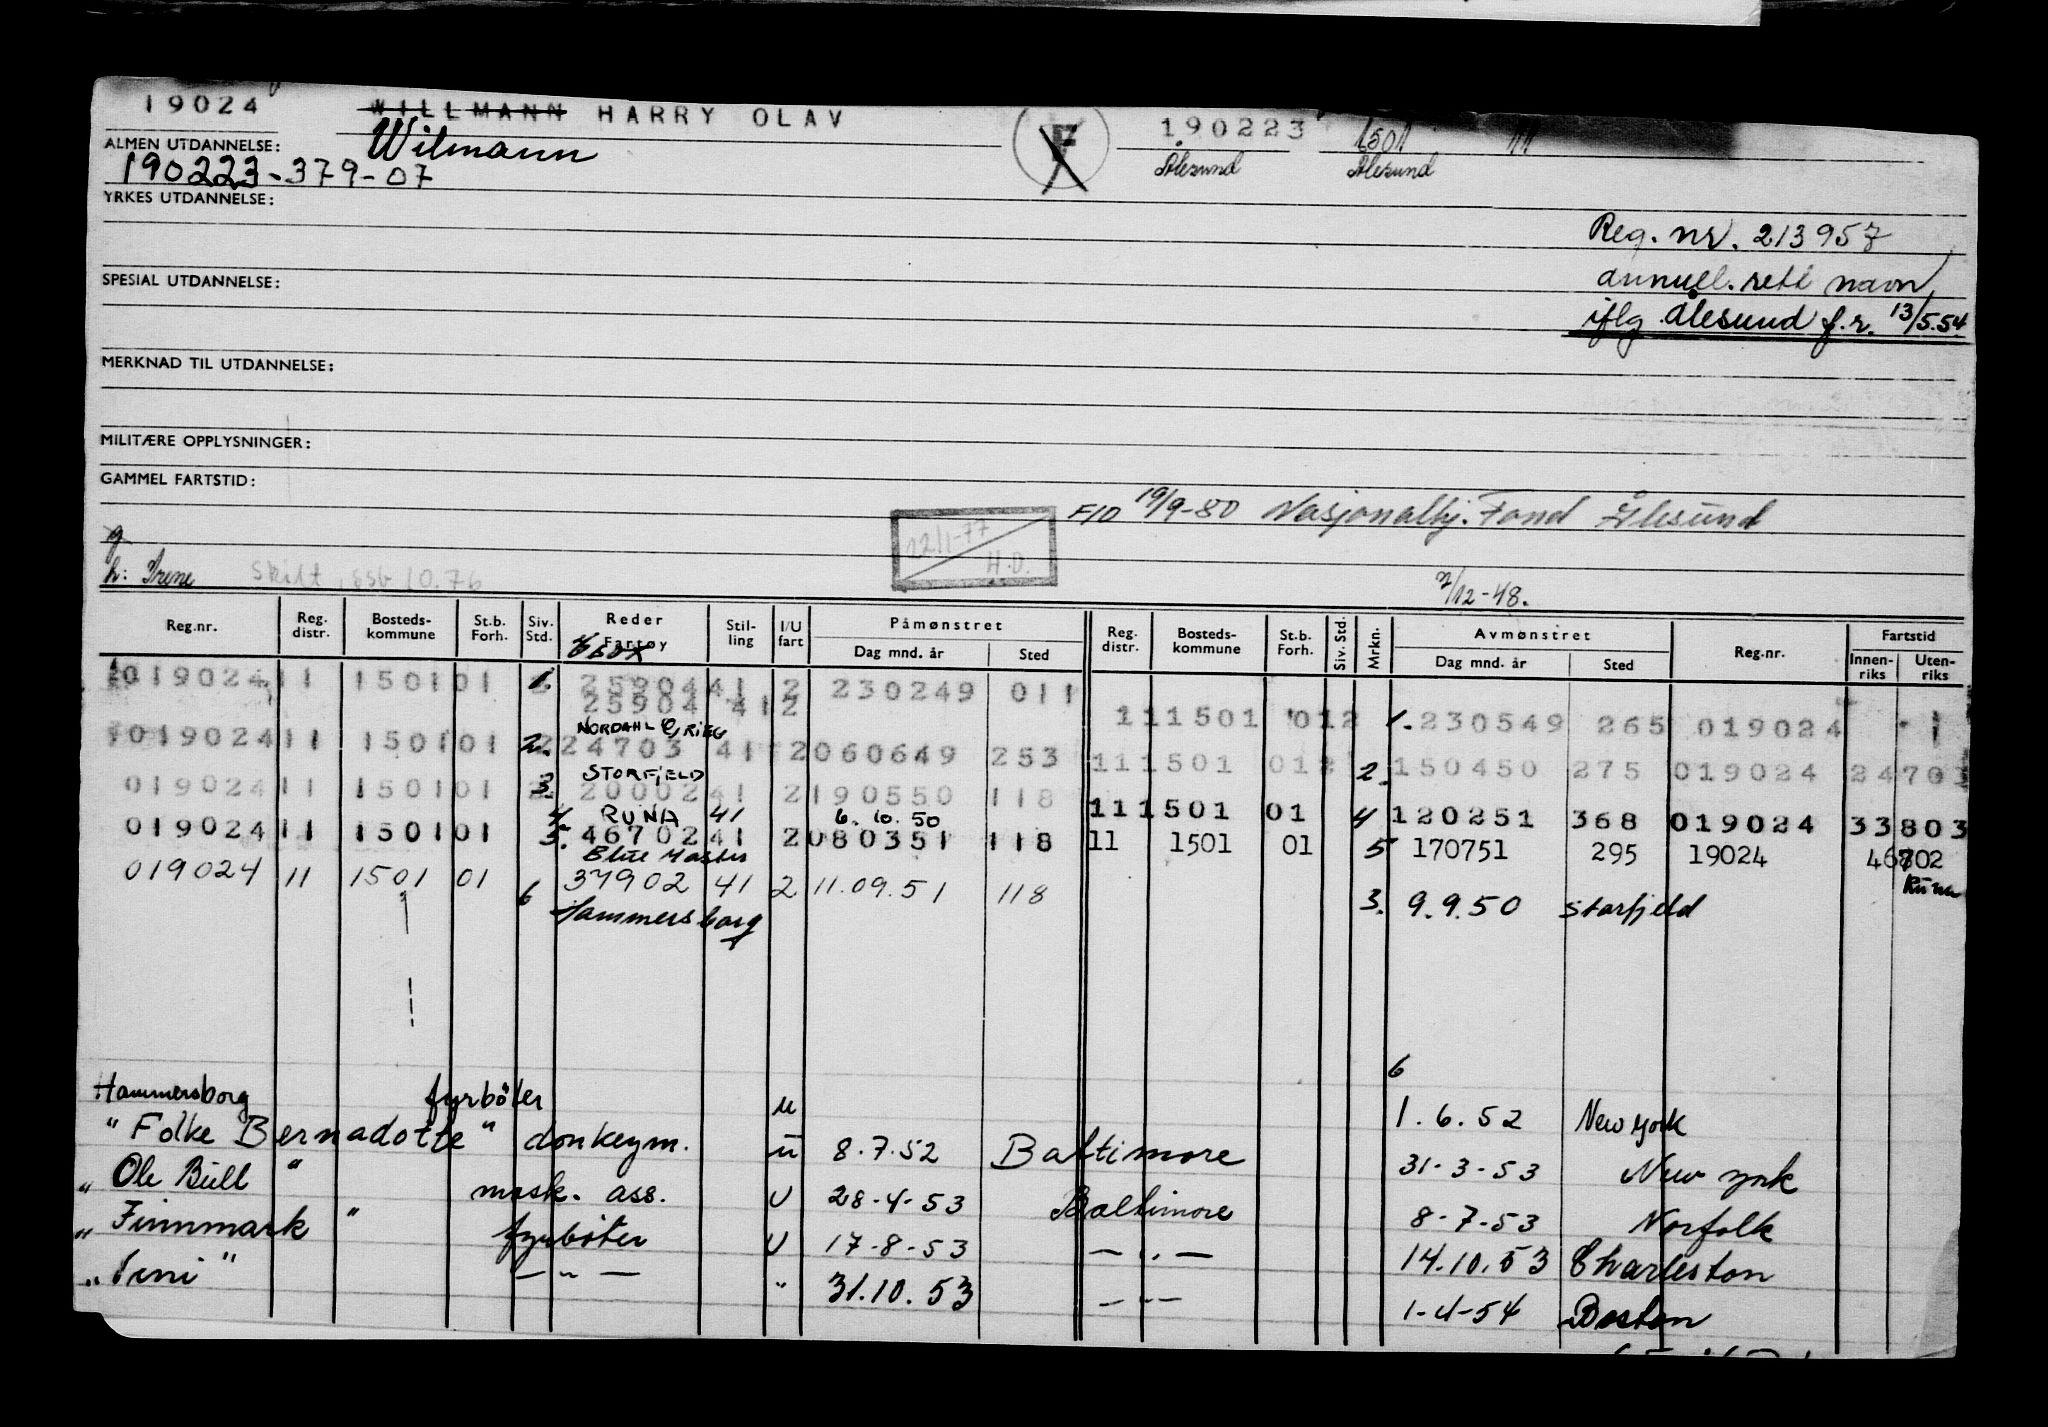 19024 WILLMANN HARRY OLAV 190223 1501
ALMEN UTDANNELSE: Wilmann Ålesund Ålesund
190223-379-07
YRKES UTDANNELSE:
Reg. nr. 213957
annull. rett navn
SPESIAL UTDANNELSE:
iflg Ålesund f.r. 13/5.54
MERKNAD TIL UTDANNELSE:
MILITÆRE OPPLYSNINGER:
GAMMEL FARTSTID:
F/D 19/9-80 Nasjonalhj. Fond Ålesund
g 12/1-77
h: Irene skilt, ssb 10.76 H.D. 7/12-48.
Reg.nr. Reg. distr. Bosteds-kommune St.b. Forh. Siv. Std. Reder Fartøy Stil-ling I/U fart Påmønstret Dag mnd. år Sted Reg. distr. Bosteds-kommune St.b. Forh. Siv. Std. Mrkn. Avmønstret Dag mnd. år Sted Reg.nr. Fartstid Innen-riks Uten-riks
019024 11 1501 01 1. 25904 41 2 230249 011
25904 41 2 11 1501 01 2 1. 230549 265 019024 1
NORDAHL GRIEG
019024 11 1501 01 2. 24703 41 2 060649 253 11 1501 01 2. 150450 275 019024 24703
STORFJELD
019024 11 1501 01 3. 20002 41 2 190550 118
4 RUNA 41 6.10.50 11 1501 01 4 120251 368 019024 33803
019024 11 1501 01 5. 46702 41 2 080351 118 11 1501 01 5 170751 295 19024 46702
Runa
019024 11 1501 01 6 37902 41 2 11.09.51 118 3. 9.9.50 Storfjeld
Hammersborg
6
Hammersborg fyrbøter u 1.6.52 New York
"Folke Bernadotte" donkeym. u 8.7.52 Baltimore 31-3-53 New York
"Ole Bull" mask. ass. U 28-4-53 Baltimore 8-7-53 Norfolk
"Finnmark" fyrbøter U 17-8-53 — " — 14.10.53 Charleston
— " — " 31.10.53 — " — 1-4-54 Boston